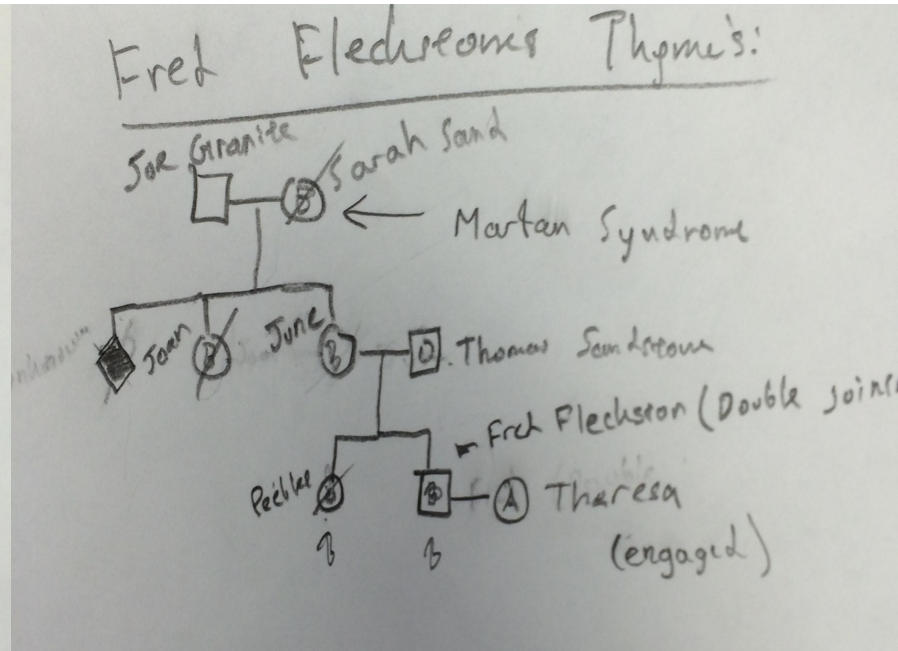 Fred Flechstoms Thyme's:
Joe Granite
Sarah Sand
Martan Syndrome
B
Joan
B
June
B
O
Thomas Sandstone
Fred Flechston (Double joint
Pebbles
B
B
A
Theresa
B
B
(engaged)